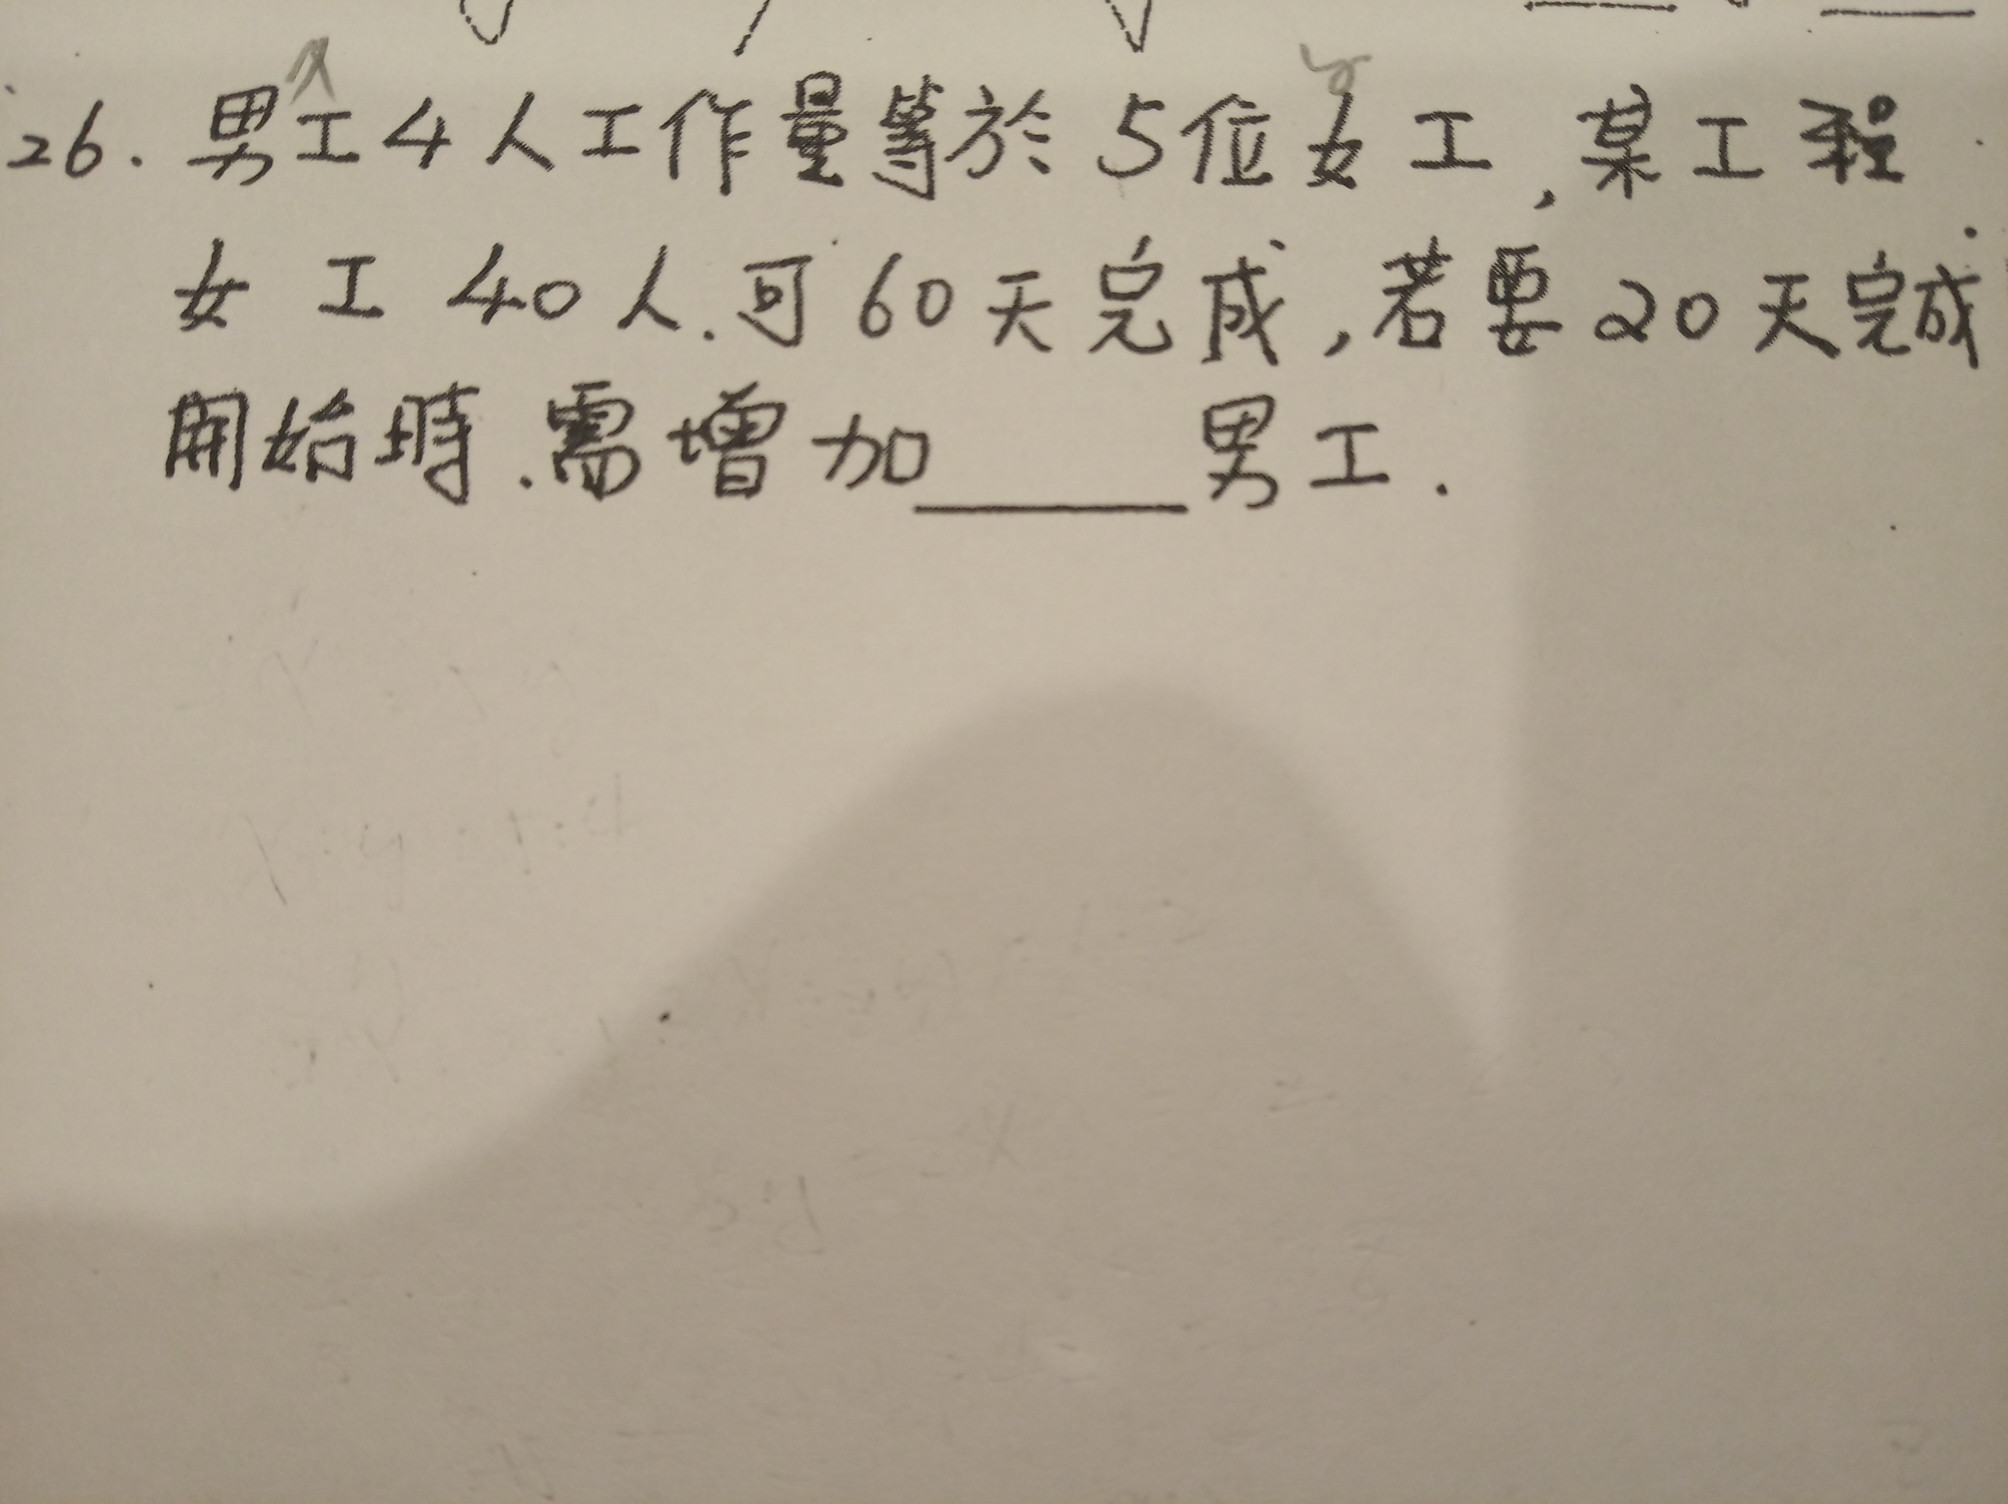 26. 男工4人工作量等於5位女工,某工程
女工40人.可60天完成,若要20天完成
開始時.需增加_____男工.